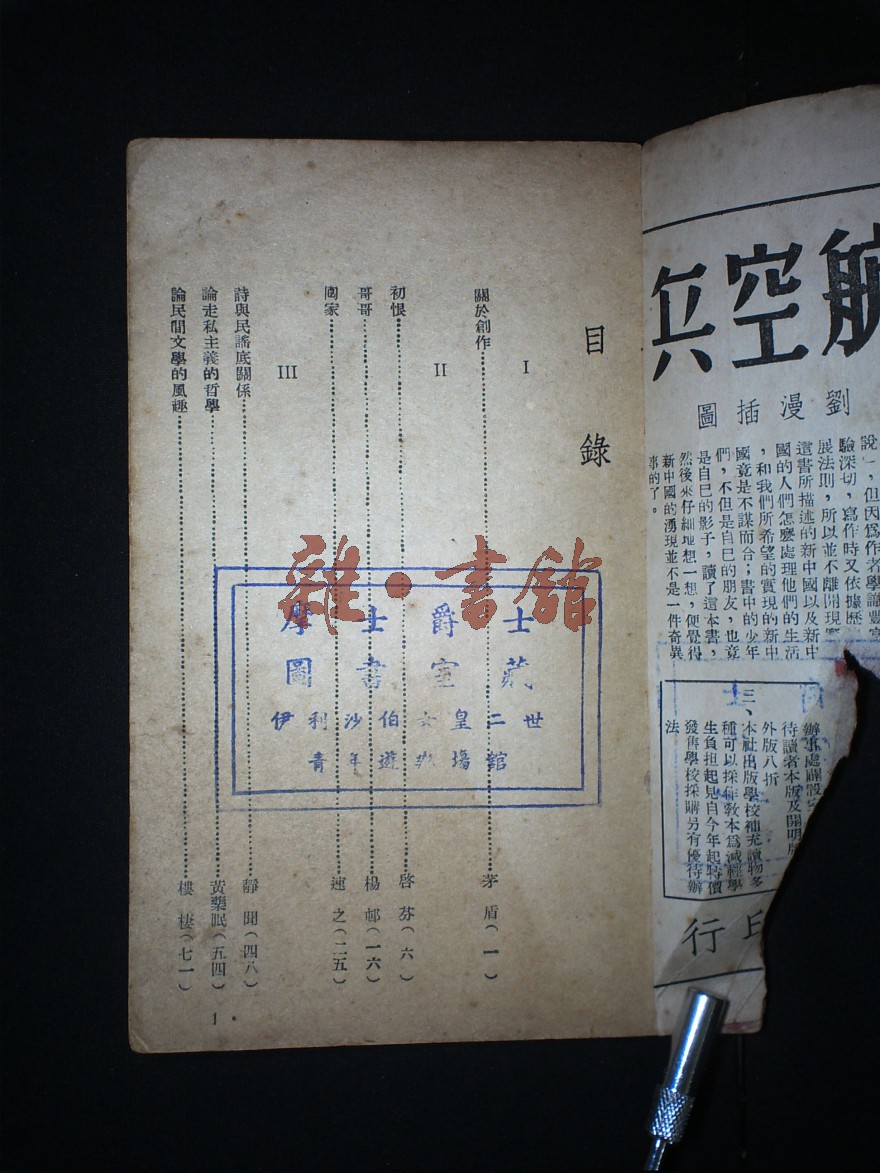 航空兵
劉漫插圖
說」,但因爲作者學識豐富
驗深切,寫作時又依據歷
展法則,所以並不離開現實
這書所描述的新中國以及新中
國的人們怎麼處理他們的生活
,和我們所希望的實現的新中
國竟是不謀而合;書中的少年
們,不但是自已的朋友,也竟
是自已的影子,讀了這本書,
然後來仔細地想一想,便覺得
新中國的湧現並不是一件奇異
事的了。
待讀者本版及開明版
外版八折
三、本社出版學校補充讀物多
種可以採作敎本爲減輕學
生負担起見自今年起特價
發售學校採購另有優待辦
法
印行
目錄
I
關於創作 茅盾(一)
II
初恨 啓芬(六)
哥哥 楊邨(一六)
國家 速之(二五)
III
詩與民謠底關係 靜聞(四八)
論走私主義的哲學 黃藥眠(五四)
論民間文學的風趣 樓棲(七一)
1
雜·書館
摩士爵士
圖書室藏
伊利沙伯女皇二世
青年遊樂場館